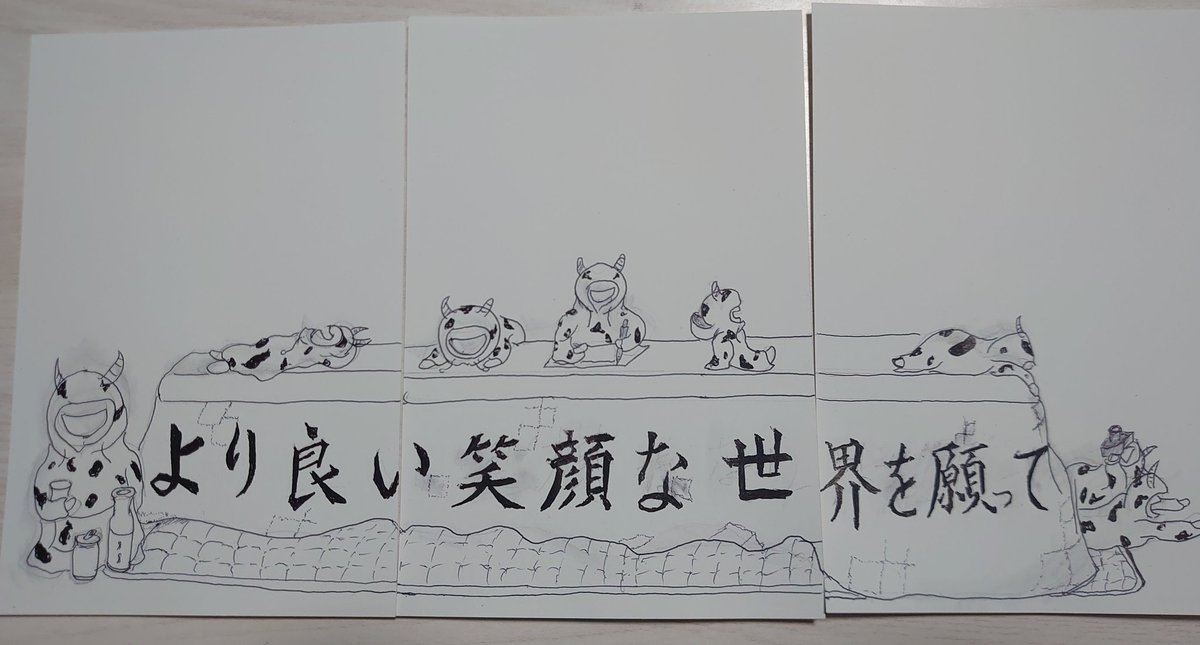 より良い笑顔な世界を願って